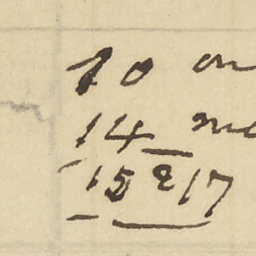 10 on
14 me
15 & 17